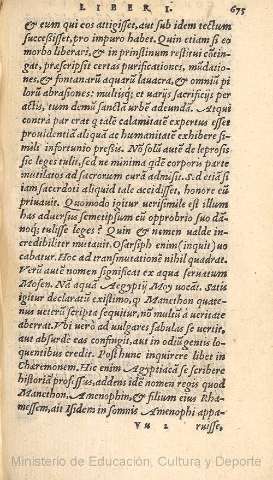 LIBER I. 675
& eum qui eos attigisset, aut sub idem tectum
successisset, pro impuro habet. Quin etiam si eo
morbo liberari, & in pristinum restitui cōtin-
gat, præscripsit certas purificationes, mūdatio-
nes, & fontanarū aquarū lauacra, & omniū pi
lorū abrasiones: multisq; et uarijs sacrificijs per
actis, tum demū sanctā urbē adeundā. Atqui
contrà par erat q tale calamitatē expertus esset
prouidentiā aliquā ac humanitatē exhibere si-
mili infortunio pressis. Nō solū autē de leprosis
sic leges tulit, sed ne minima qdē corporis parte
mutilatos ad sacrorum curā admisit. Sed etiā si
iam sacerdoti aliquid tale accidisset, honore eū
priuauit. Quomodo igitur uerisimile est illum
has aduersus semetipsum cū opprobrio suo dā-
noq; tulisse leges? Quin & nomen ualde in-
credibiliter mutauit. Osarsiph enim (inquit) uo
cabatur. Hoc ad transmutationē nihil quadrat.
Verū autē nomen significat ex aqua seruatum
Mosen. Nā aquā Aegyptij Moy uocāt. Satis
igitur declaratū existimo, q Manethon quate-
nus ueterū scripta sequitur, nō multū à ueritate
aberrat. Vbi uerò ad uulgares fabulas se uertit,
aut absurdè eas confingit, aut in odiū gentis lo-
quentibus credit. Post hunc inquirere libet in
Chæremonem. Hic enim Aegyptiacā se scribere
historiā professus, addens idē nomen regis quod
Manethon, Amenophin, & filium eius Rha-
messem, ait Isidem in somnis Amenophi appa-
Vu 2 ruisse,
Ministerio de Educación, Cultura y Deporte